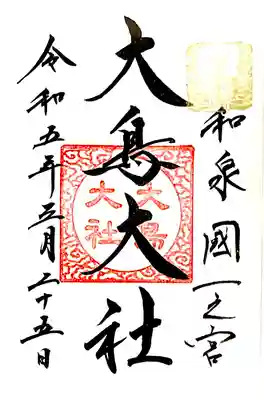 和泉國一之宮
大鳥大社
大鳥
大社
令和五年三月二十五日